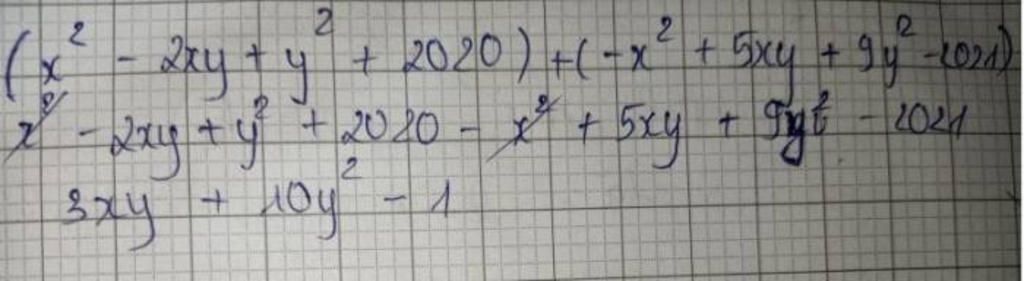 (x² - 2xy + y² + 2020) + (-x² + 5xy + 9y² - 2021)
x² - 2xy + y² + 2020 - x² + 5xy + 9y² - 2021
3xy + 10y² - 1